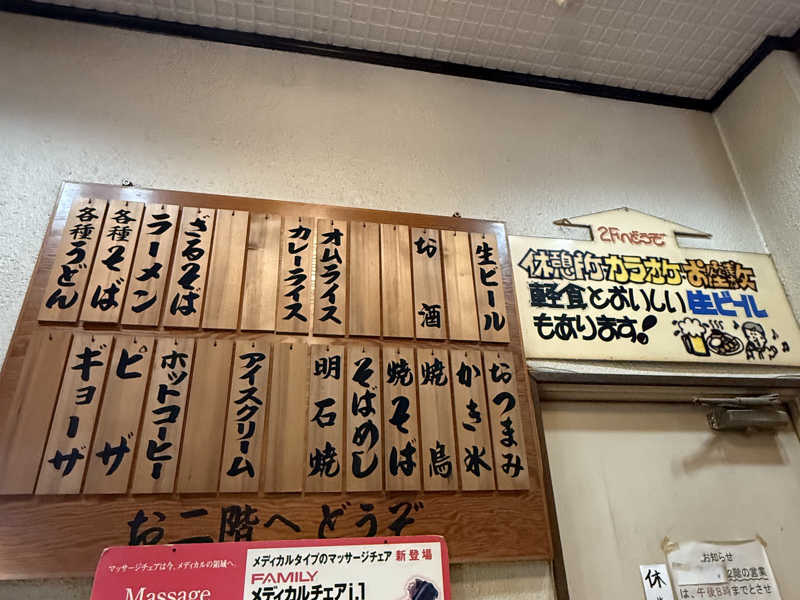 生ビール
お酒
オムライス
カレーライス
ざるそば
ラーメン
各種そば
各種うどん
おつまみ
かき氷
焼鳥
焼そば
そばめし
明石焼
アイスクリーム
ホットコーヒー
ピザ
ギョーザ
お二階へどうぞ
2Fへどうぞ
休憩所・カラオケ・お座敷
軽食とおいしい生ビール
もあります!
マッサージチェアは今、メディカルの領域へ。
Massage
メディカルタイプのマッサージチェア 新登場
FAMILY
メディカルチェアi.1
休
お知らせ
2階の営業
は、午後8時までとさせ